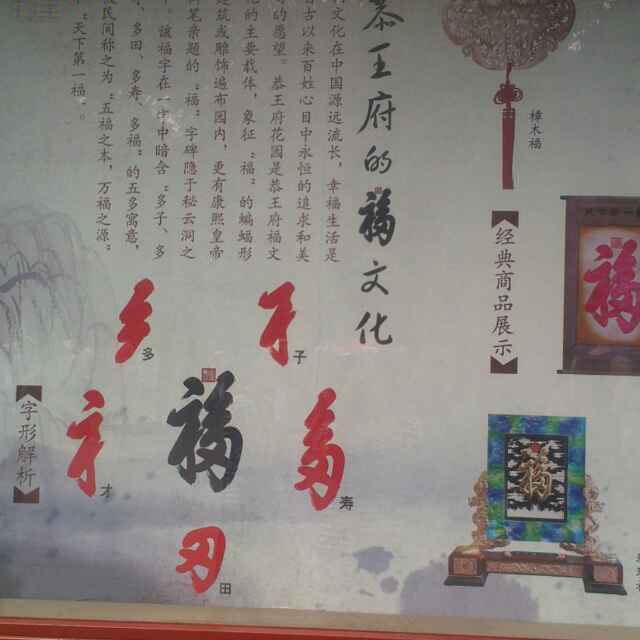 恭王府的福文化
文化在中国源远流长，幸福生活是
古以来百姓心目中永恒的追求和美
的愿望。恭王府花园是恭王府福文
的主要载体，象征“福”的蝙蝠形
筑或雕饰遍布园内，更有康熙皇帝
笔亲题的“福”字碑隐于秘云洞之
。该福字在一字中暗含“多子、多
、多田、多寿、多福”的五多寓意，
民间称之为“五福之本，万福之源”
“天下第一福”。
樟木福
经典商品展示
福
福
字形解析
多
子
才
福
寿
田